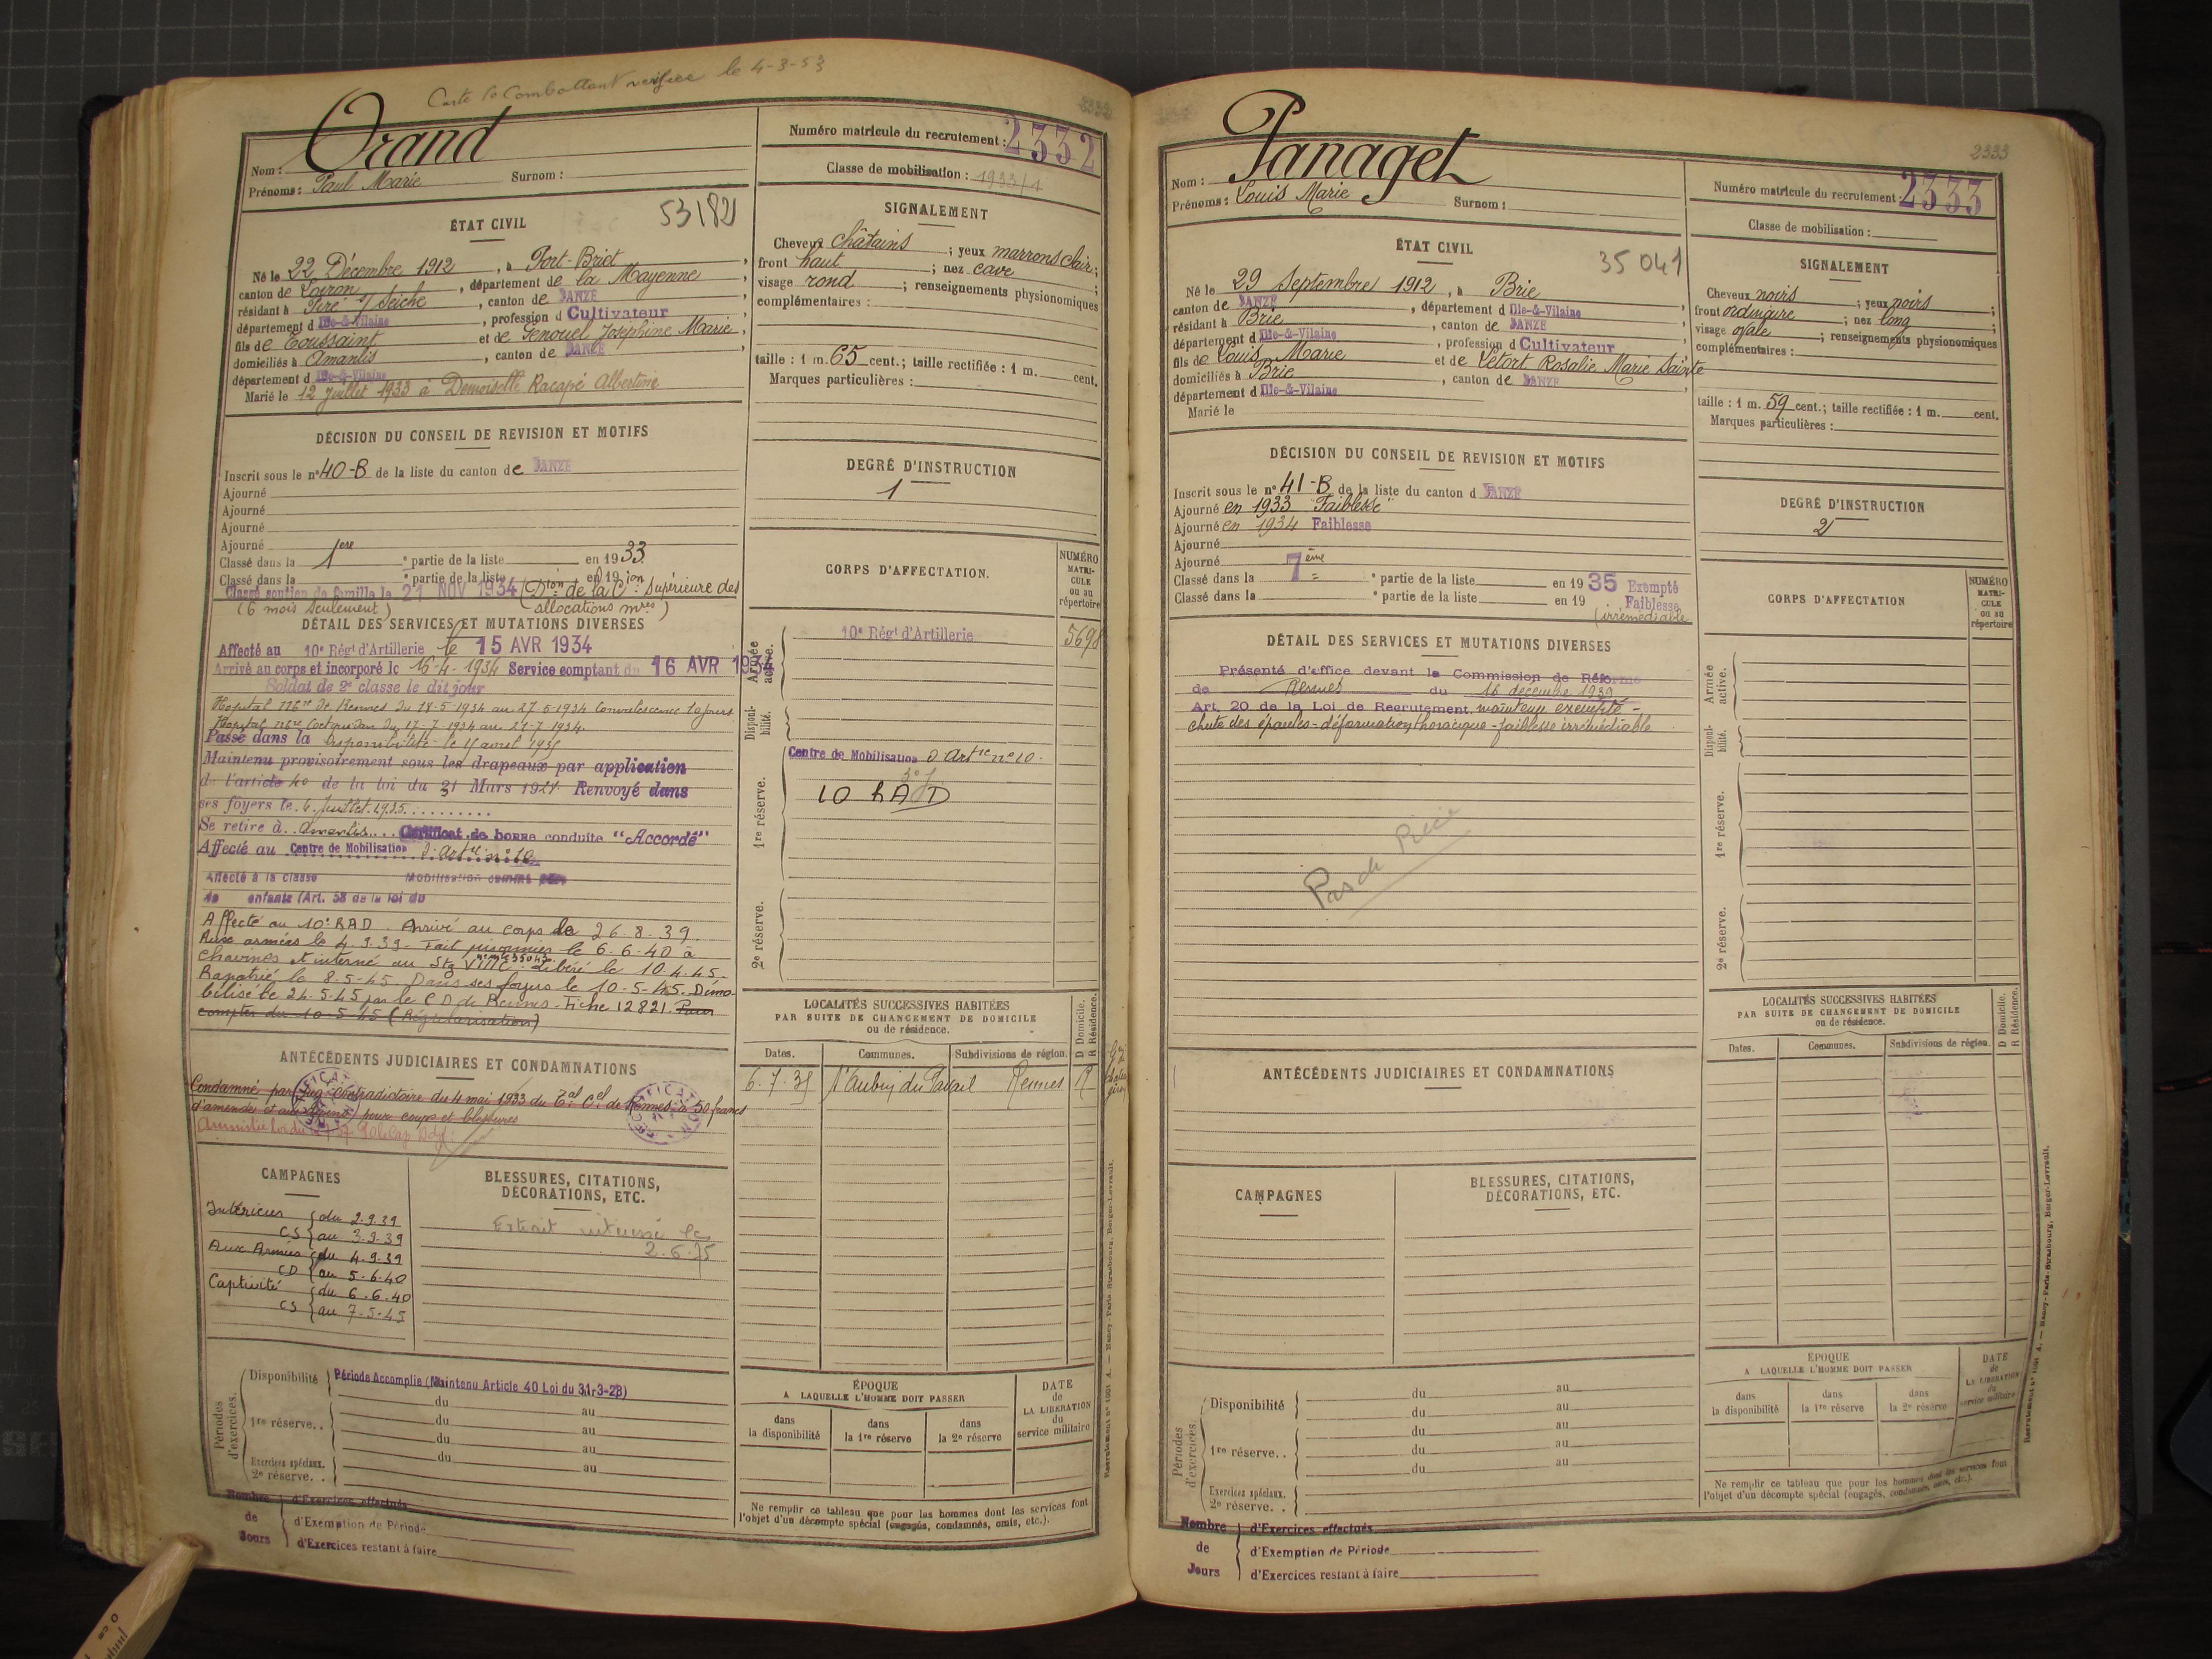 Carte du Combattant le 4-3-53
Orand
Nom :
Prénoms : Paul Marie Surnom :
Numéro matricule du recrutement : 2332
Classe de mobilisation : 1933/1
ÉTAT CIVIL
53182
Né le 22 Décembre 1912, à Port-Briet,
canton de Loiron, département de la Mayenne,
résidant à Piré s/ Seiche, canton de JANZÉ,
département d Ille-&-Vilaine, profession d Cultivateur,
fils de Toussaint et de Fenouel Joséphine Marie,
domiciliés à Amanlis, canton de JANZÉ,
département d Ille-&-Vilaine
Marié le 12 Juillet 1933 à Demoiselle Racapé Albertine
SIGNALEMENT
Cheveux châtains ; yeux marrons clair ;
front haut ; nez cave ;
visage rond ; renseignements physionomiques
complémentaires :
taille : 1 m. 65 cent.; taille rectifiée : 1 m. cent.
Marques particulières :
DÉCISION DU CONSEIL DE REVISION ET MOTIFS
Inscrit sous le n° 40-B de la liste du canton de JANZÉ
Ajourné
Ajourné
Ajourné
Ajourné
Classé dans la 1ere e partie de la liste en 1933
Classé dans la e partie de la liste en 19
Classé soutien de famille le 21 NOV 1934 (Dton de la Cion Supérieure des
(6 mois seulement) allocations mres)
DEGRÉ D'INSTRUCTION
1
DÉTAIL DES SERVICES ET MUTATIONS DIVERSES
Affecté au 10e Régt d'Artillerie le 15 AVR 1934
Arrivé au corps et incorporé le 16-4-1934 Service comptant du 16 AVR 1934
Soldat de 2e classe le dit jour
Hopital mre de Rennes du 18-5-1934 au 27-5-1934 Convalescence 20 jours
Hopital mre Coetquidan du 17-7-1934 au 21-7-1934.
Passé dans la disponibilité le 15 avril 1935
Maintenu provisoirement sous les drapeaux par application
de l'article 40 de la loi du 31 Mars 1928 Renvoyé dans
ses foyers le 6 Juillet 1935
Se retire à Amanlis Certificat de bonne conduite "Accordé"
Affecté au Centre de Mobilisation d'Artie n° 10
Affecté à la classe Mobilisation comme père
de enfants (Art. 58 de la loi du
Affecté au 10e RAD. Arrivé au corps le 26.8.39.
Aux armées le 4.9.39 - Fait prisonnier le 6.6.40 à
Chaulnes et interné au Stg VIIIC. Libéré le 10.4.45.
Rapatrié le 8-5-45. Dans ses foyers le 10-5-45. Démo-
bilisé le 24.5.45 par le C D de Rennes - Fiche 12821. Pour
compter du 10-5-45 (Régularisation)
CORPS D'AFFECTATION.
NUMÉRO MATRI-CULE ou au répertoire
Armée active.
10e Régt d'Artillerie 5698
Disponi-bilité.
1re réserve.
Centre de Mobilisation d'Artie n° 10.
10 RAD
2e réserve.
ANTÉCÉDENTS JUDICIAIRES ET CONDAMNATIONS
Condamné par Jug. contradictoire du 4 mai 1933 du Tal Cel de Rennes à 50 francs
d'amende et aux dépens pour coups et blessures
LOCALITÉS SUCCESSIVES HABITÉES
PAR SUITE DE CHANGEMENT DE DOMICILE
ou de résidence.
D Domicile.
R Résidence.
Dates. Communes. Subdivisions de région.
6.7.35 St Aubin du Pavail Rennes R
CAMPAGNES
Intérieur du 2.9.39
CS au 3.9.39
Aux Armées du 4.9.39
CD au 5.6.40
Captivité du 6.6.40
CS au 7-5-45
BLESSURES, CITATIONS,
DÉCORATIONS, ETC.
Extrait le
2.6.75
Périodes d'exercices.
Disponibilité Période Accomplie (Maintenu Article 40 Loi du 31-3-28)
du au
1re réserve. . du au
du au
du au
Exercices spéciaux.
2e réserve. .
Nombre de Jours
d'Exercices effectués
d'Exemption de Période
d'Exercices restant à faire
ÉPOQUE
A LAQUELLE L'HOMME DOIT PASSER
dans la disponibilité
dans la 1re réserve
dans la 2e réserve
DATE de LA LIBÉRATION du service militaire
Ne remplir ce tableau que pour les hommes dont les services font
l'objet d'un décompte spécial (engagés, condamnés, omis, etc.).
2333
Panaget
Nom :
Prénoms : Louis Marie Surnom :
Numéro matricule du recrutement : 2333
Classe de mobilisation :
ÉTAT CIVIL
35041
Né le 29 Septembre 1912, à Brie,
canton de JANZÉ, département d Ille-&-Vilaine,
résidant à Brie, canton de JANZÉ,
département d Ille-&-Vilaine, profession d Cultivateur,
fils de Louis Marie et de Létort Rosalie Marie Sainte
domiciliés à Brie, canton de JANZÉ,
département d Ille-&-Vilaine
Marié le
SIGNALEMENT
Cheveux noirs ; yeux noirs ;
front ordinaire ; nez long ;
visage ovale ; renseignements physionomiques
complémentaires :
taille : 1 m. 59 cent.; taille rectifiée : 1 m. cent.
Marques particulières :
DÉCISION DU CONSEIL DE REVISION ET MOTIFS
Inscrit sous le n° 41-B de la liste du canton d JANZÉ
Ajourné en 1933 "Faiblesse"
Ajourné en 1934 Faiblesse
Ajourné
Ajourné
Classé dans la 7ème e partie de la liste en 1935 Exempté
Classé dans la e partie de la liste en 19 Faiblesse
(irrémédiable
DEGRÉ D'INSTRUCTION
2
DÉTAIL DES SERVICES ET MUTATIONS DIVERSES
Présenté d'office devant la Commission de Réforme
de Rennes du 16 décembre 1939
Art. 20 de la Loi de Recrutement. maintenu exempté -
chute des épaules - déformation thoracique - faiblesse irrémédiable
CORPS D'AFFECTATION
NUMÉRO MATRI-CULE ou au répertoire
Armée active.
Disponi-bilité.
1re réserve.
2e réserve.
ANTÉCÉDENTS JUDICIAIRES ET CONDAMNATIONS
LOCALITÉS SUCCESSIVES HABITÉES
PAR SUITE DE CHANGEMENT DE DOMICILE
ou de résidence.
D Domicile.
R Résidence.
Dates. Communes. Subdivisions de région.
CAMPAGNES
BLESSURES, CITATIONS,
DÉCORATIONS, ETC.
Périodes d'exercices.
Disponibilité du au
du au
1re réserve. . du au
du au
du au
Exercices spéciaux.
2e réserve. .
Nombre de Jours
d'Exercices effectués
d'Exemption de Période
d'Exercices restant à faire
ÉPOQUE
A LAQUELLE L'HOMME DOIT PASSER
dans la disponibilité
dans la 1re réserve
dans la 2e réserve
DATE de LA LIBÉRATION du service militaire
Ne remplir ce tableau que pour les hommes dont les services font
l'objet d'un décompte spécial (engagés, condamnés, omis, etc.).